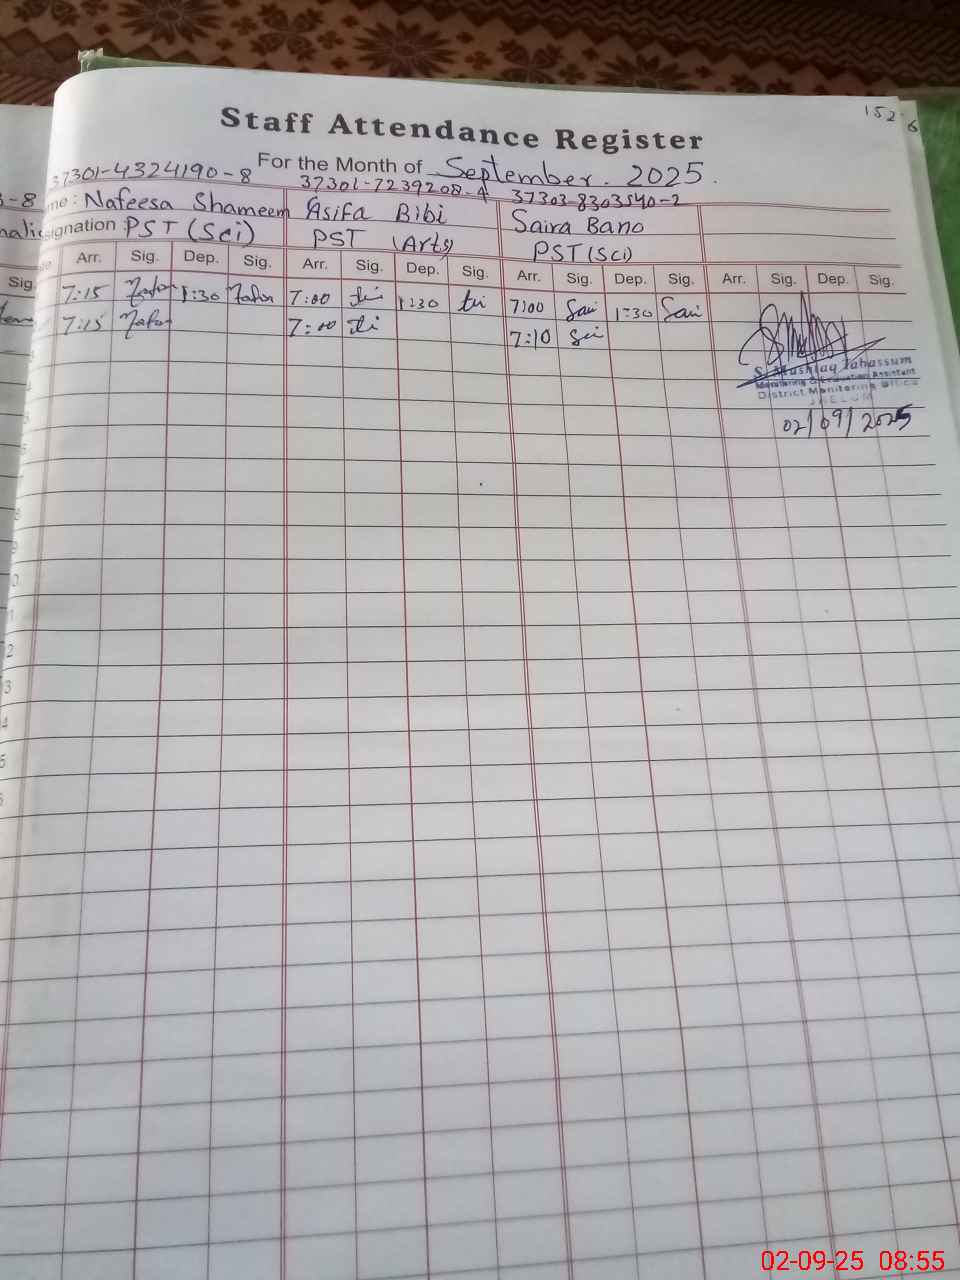 152
6
Staff Attendance Register
For the Month of September. 2025.
37301-4324190-8 37301-7239208-4 37303-8303540-2
3-8 me: Nafeesa Shameem Asifa Bibi Saira Bano
signation: PST (Sci) PST (Arts) PST (Sci)
Sig. Arr. Sig. Dep. Sig. Arr. Sig. Dep. Sig. Arr. Sig. Dep. Sig. Arr. Sig. Dep. Sig.
7:15 1:30 7:00 1:30 7:00 Sai 1:30 Sai
7:15 7:00 7:10 Sai
S. Mushtaq Tabassum
Monitoring & Evaluation Assistant
District Monitoring Office
JHELUM
02/09/2025
8
9
0
1
2
3
4
5
02-09-25 08:55